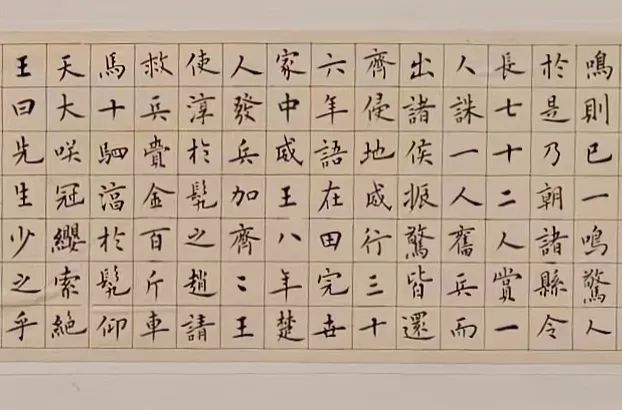 鳴則已一鳴驚人
於是乃朝諸縣令
長七十二人賞一
人誅一人奮兵而
出諸侯振驚皆還
齊侵地威行三十
六年語在田完世
家中威王八年楚
人發兵加齊〻王
使淳於髡之趙請
救兵賫金百斤車
馬十駟湻於髡仰
天大咲冠纓索絶
王曰先生少之乎